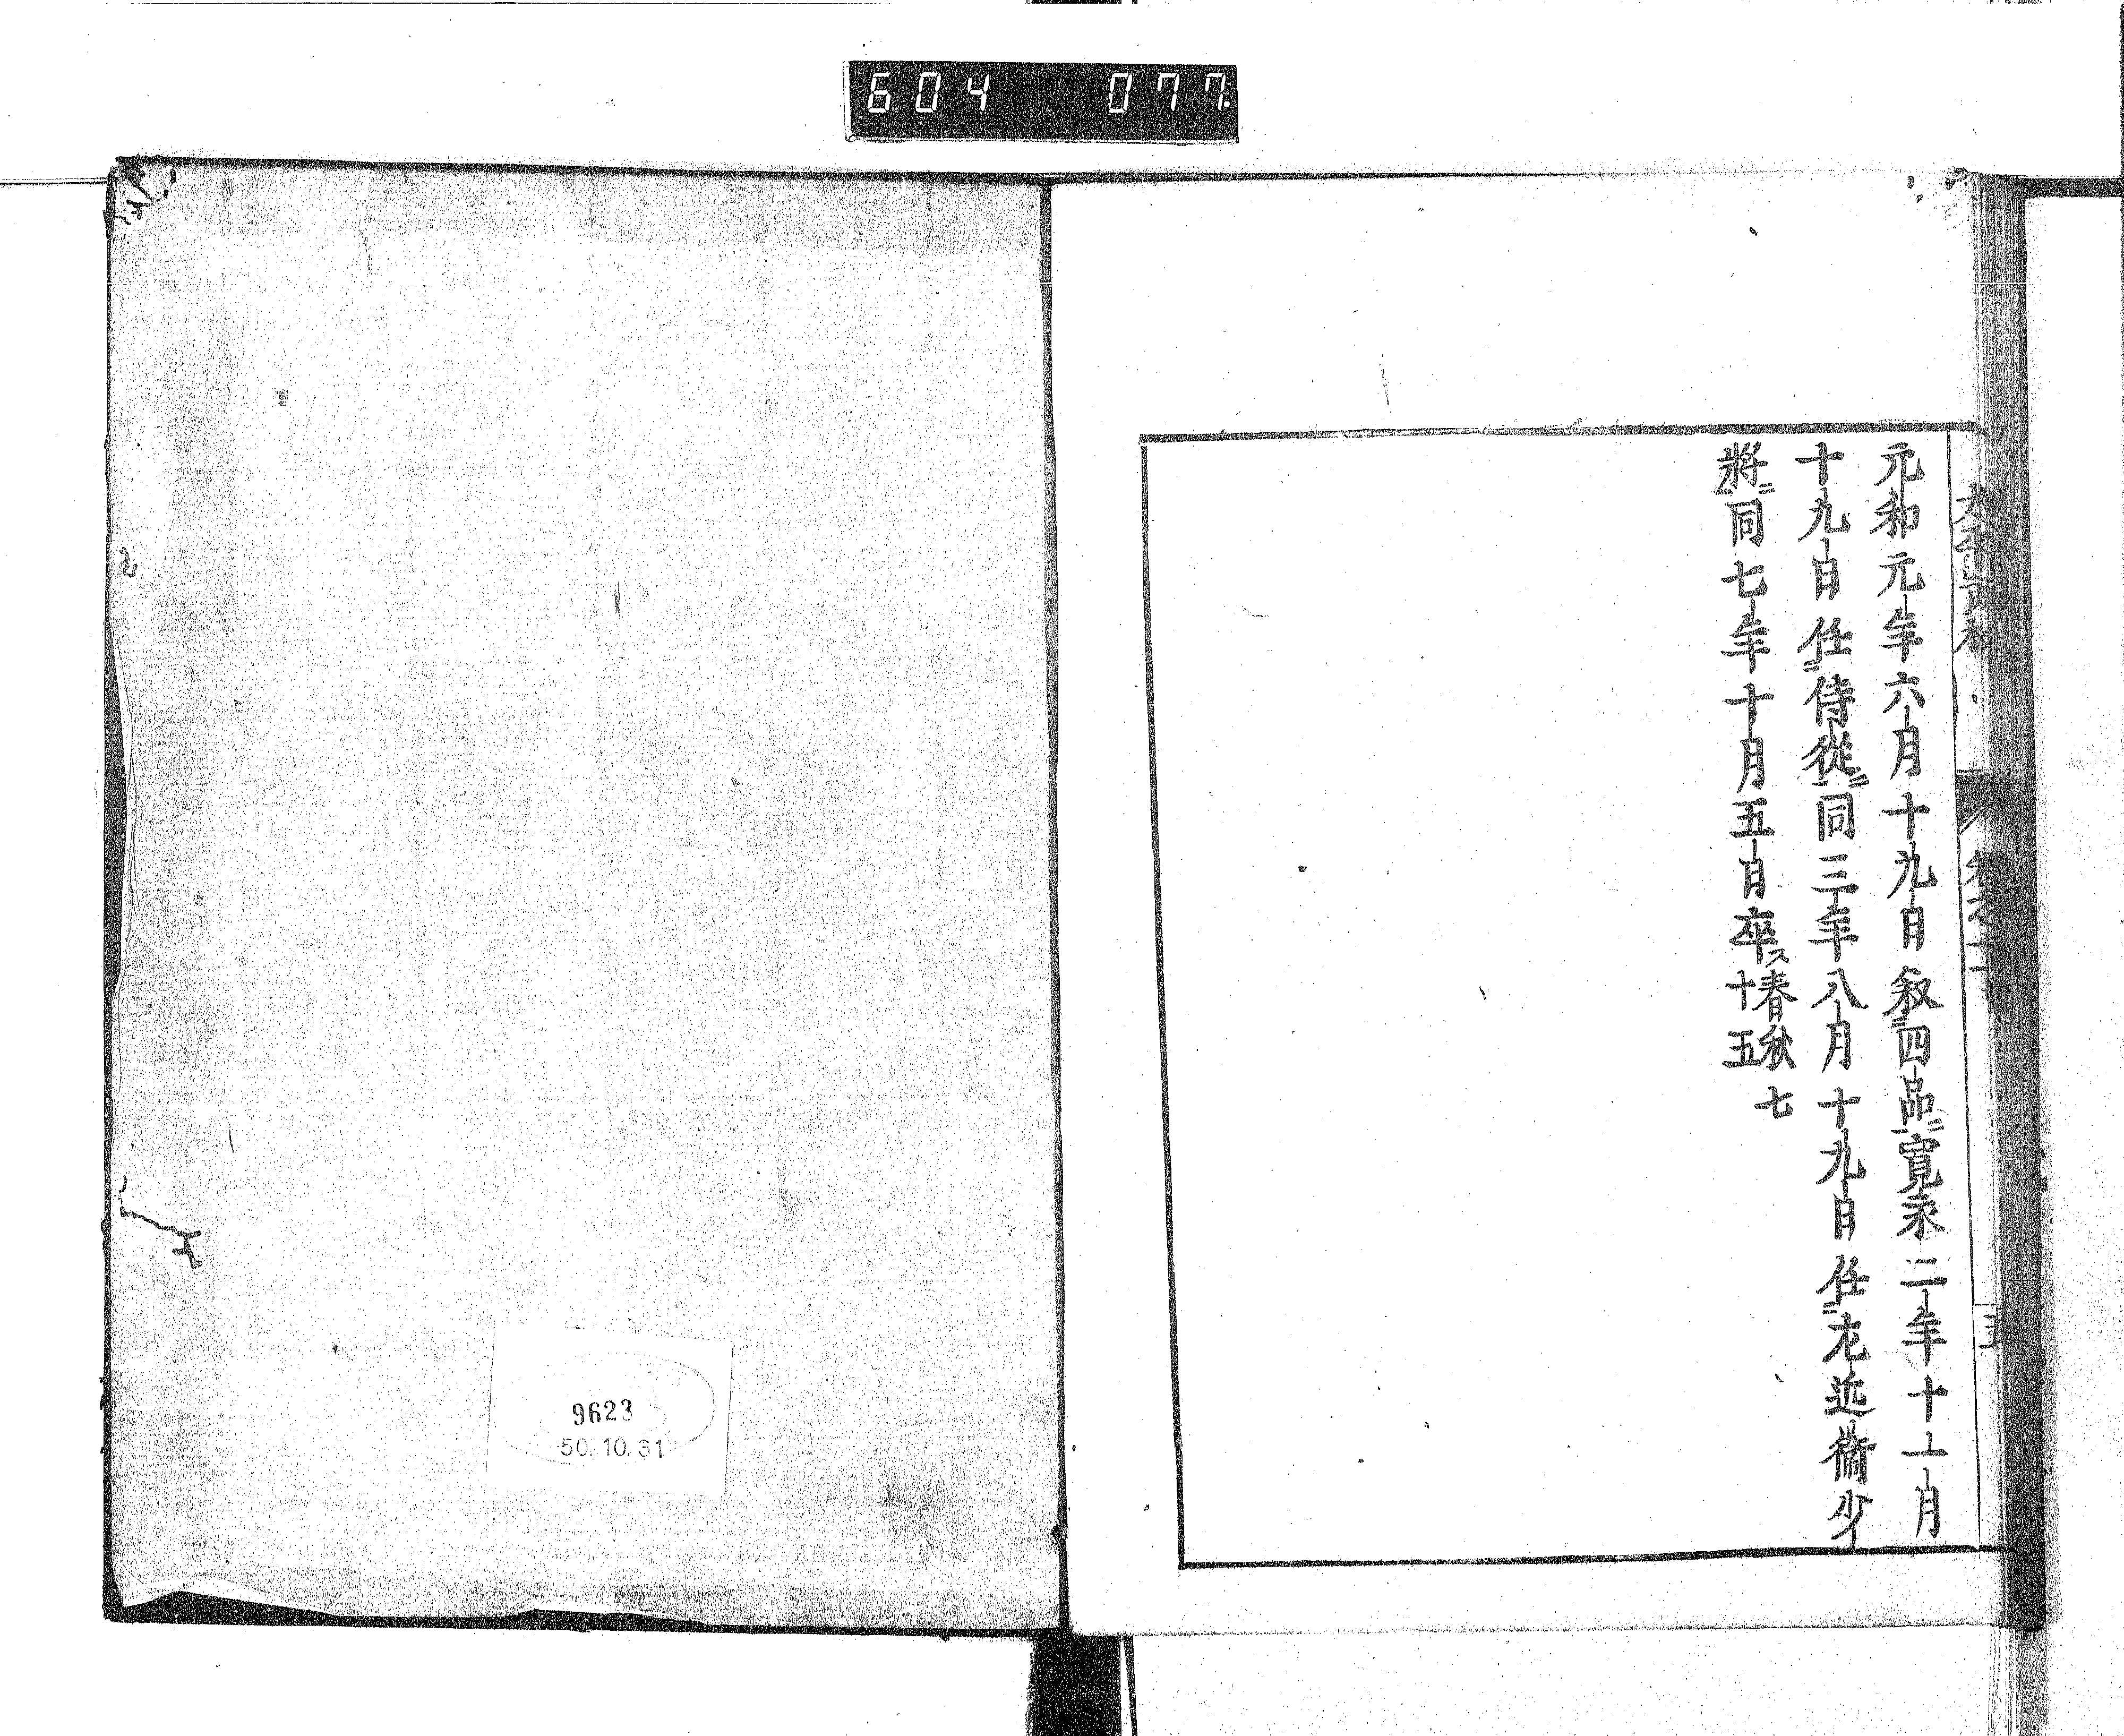 604 077
元和元年六月十九日叙四品寛永二年十一月
十九日任侍從同三年八月十九日任左近衞少
將同七年十月五日卒ス春秋七
十五
9623
50.10.31